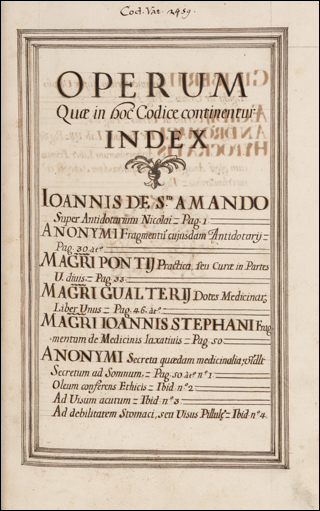 Cod. Vat. 2459.
OPERUM
Quæ in hoc Codice continentur
INDEX
IOANNIS DE S.to AMANDO
Super Antidotarium Nicolai = Pag. 1
ANONYMI Fragmentũ cujusdam Antidotarij =
Pag. 30. at.o
MAGRI PONTIJ Practica, seu Curæ in Partes
U. divis. = Pag. 33
MAGRI GUALTERIJ Dotes Medicinar.
Liber Unus = Pag. 46. at.o
MAGRI IOANNIS STEPHANI Frag-
mentum de Medicinis laxativis = Pag. 50
ANONYMI Secreta quædam medicinalia,
Secretum ad Somnum, = Pag. 50 at.o n.o 1
Oleum conferens Ethicis = Ibid. n.o 2
Ad Uisum acutum = Ibid n.o 3
Ad debilitatem Stomaci, seu Uisus Pillulę = Ibid. n.o 4.